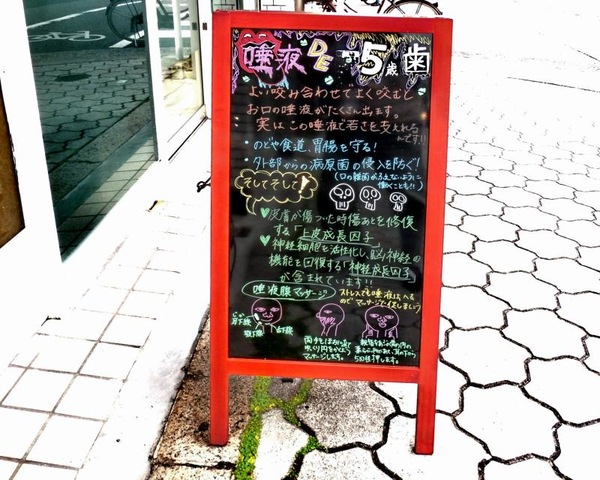 唾液 DE -5歳 歯
よい咬み合わせでよく咬むと
お口の唾液がたくさん出ます。
実はこの唾液が若さを支えてくれるんです!!
・のどや食道、胃腸を守る!
・外部からの病原菌の侵入を防ぐ!
(口の雑菌がふえないように働くことも!!)
そしてそして!
皮膚が傷ついた時傷あとを修復
する「上皮成長因子」
神経細胞を活性化し、脳神経の
機能を回復する「神経成長因子」
が含まれています!!
唾液腺マッサージ
ストレスでも唾液は
のでマッサージで促しましょう
耳下腺
顎下腺
舌下腺
マッサージします。
5回程押します。